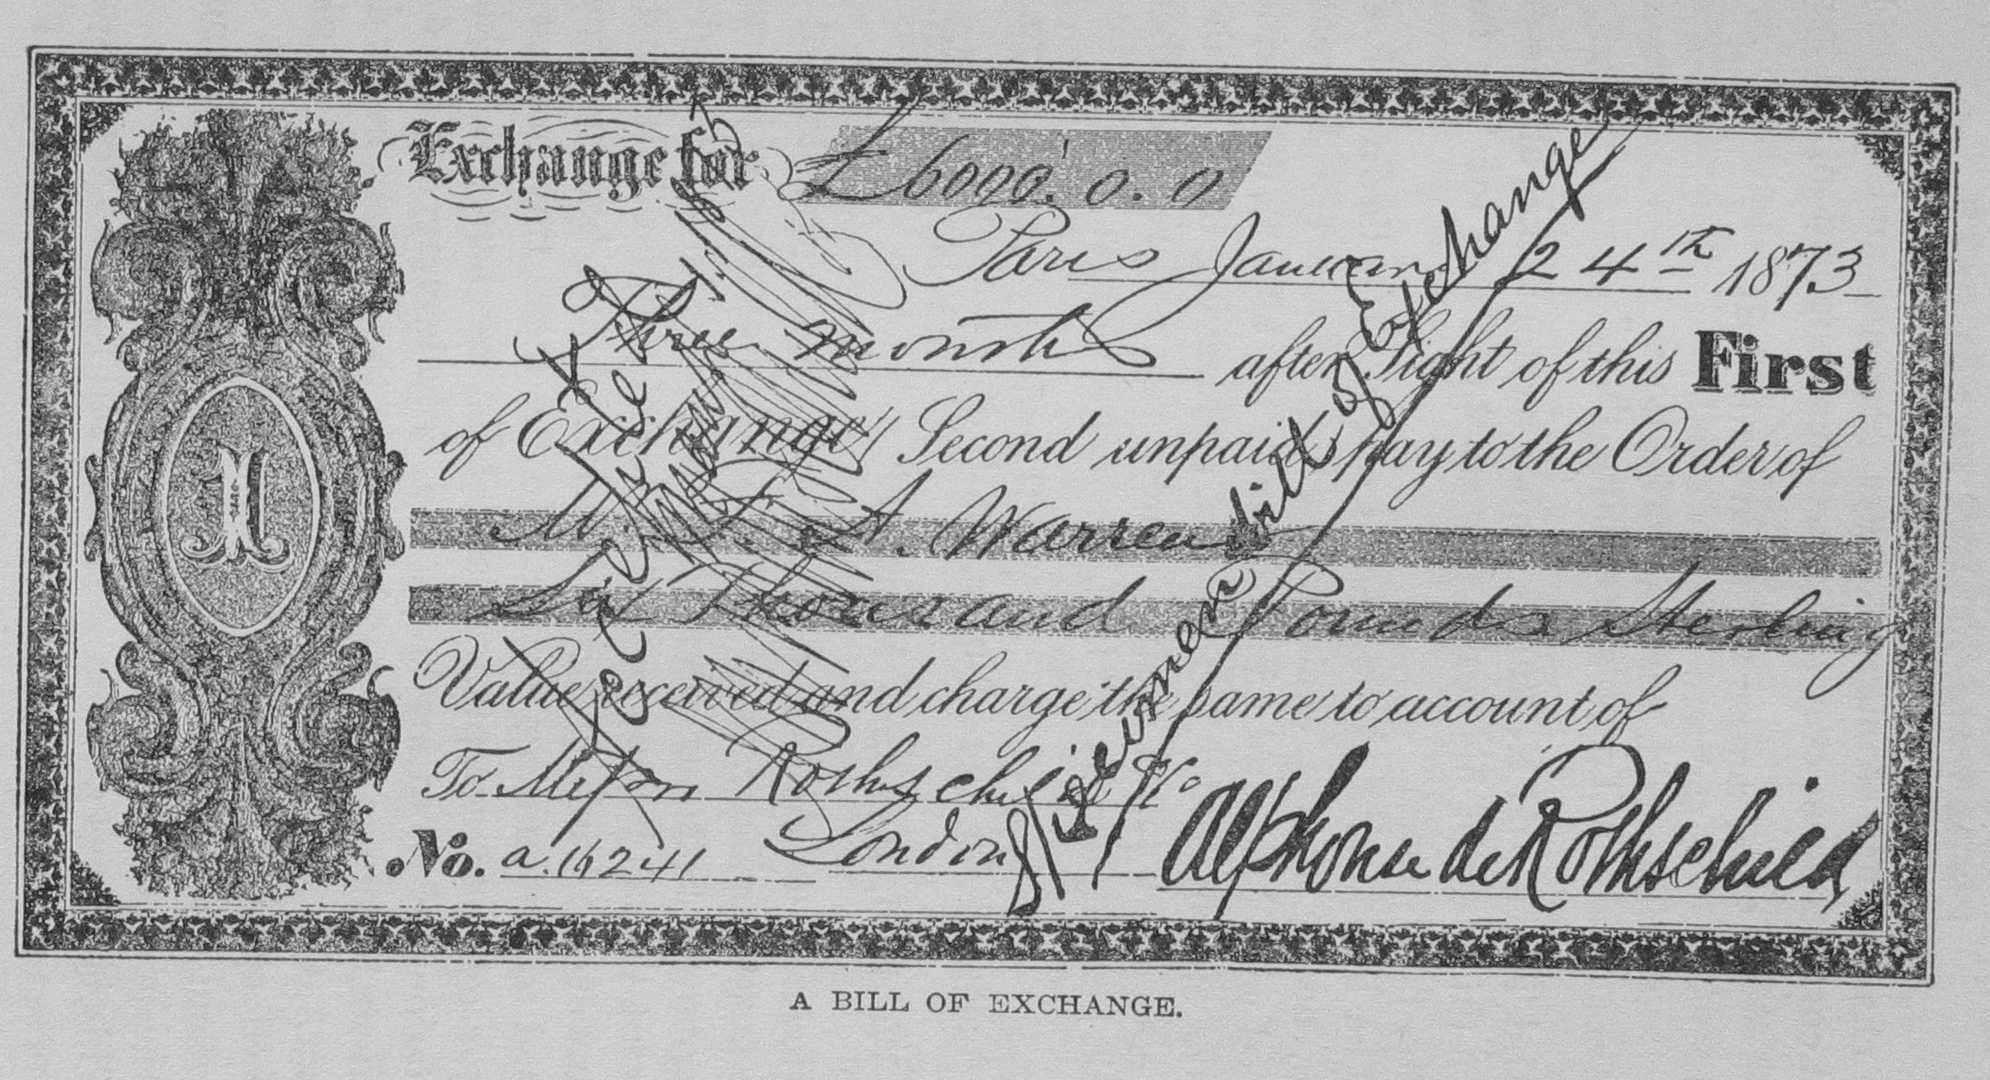 Exchange for £6000.0.0
Paris January 24th 1873
Three months after Sight of this First
of Exchange, Second unpaid, pay to the Order of
A. Warren
Six Thousand Pounds Sterling
Value received and charge the same to account of
To Rothschild & Co
London
No. a.16241
Alphonse de Rothschild
Specimen bill of Exchange
1
A BILL OF EXCHANGE.